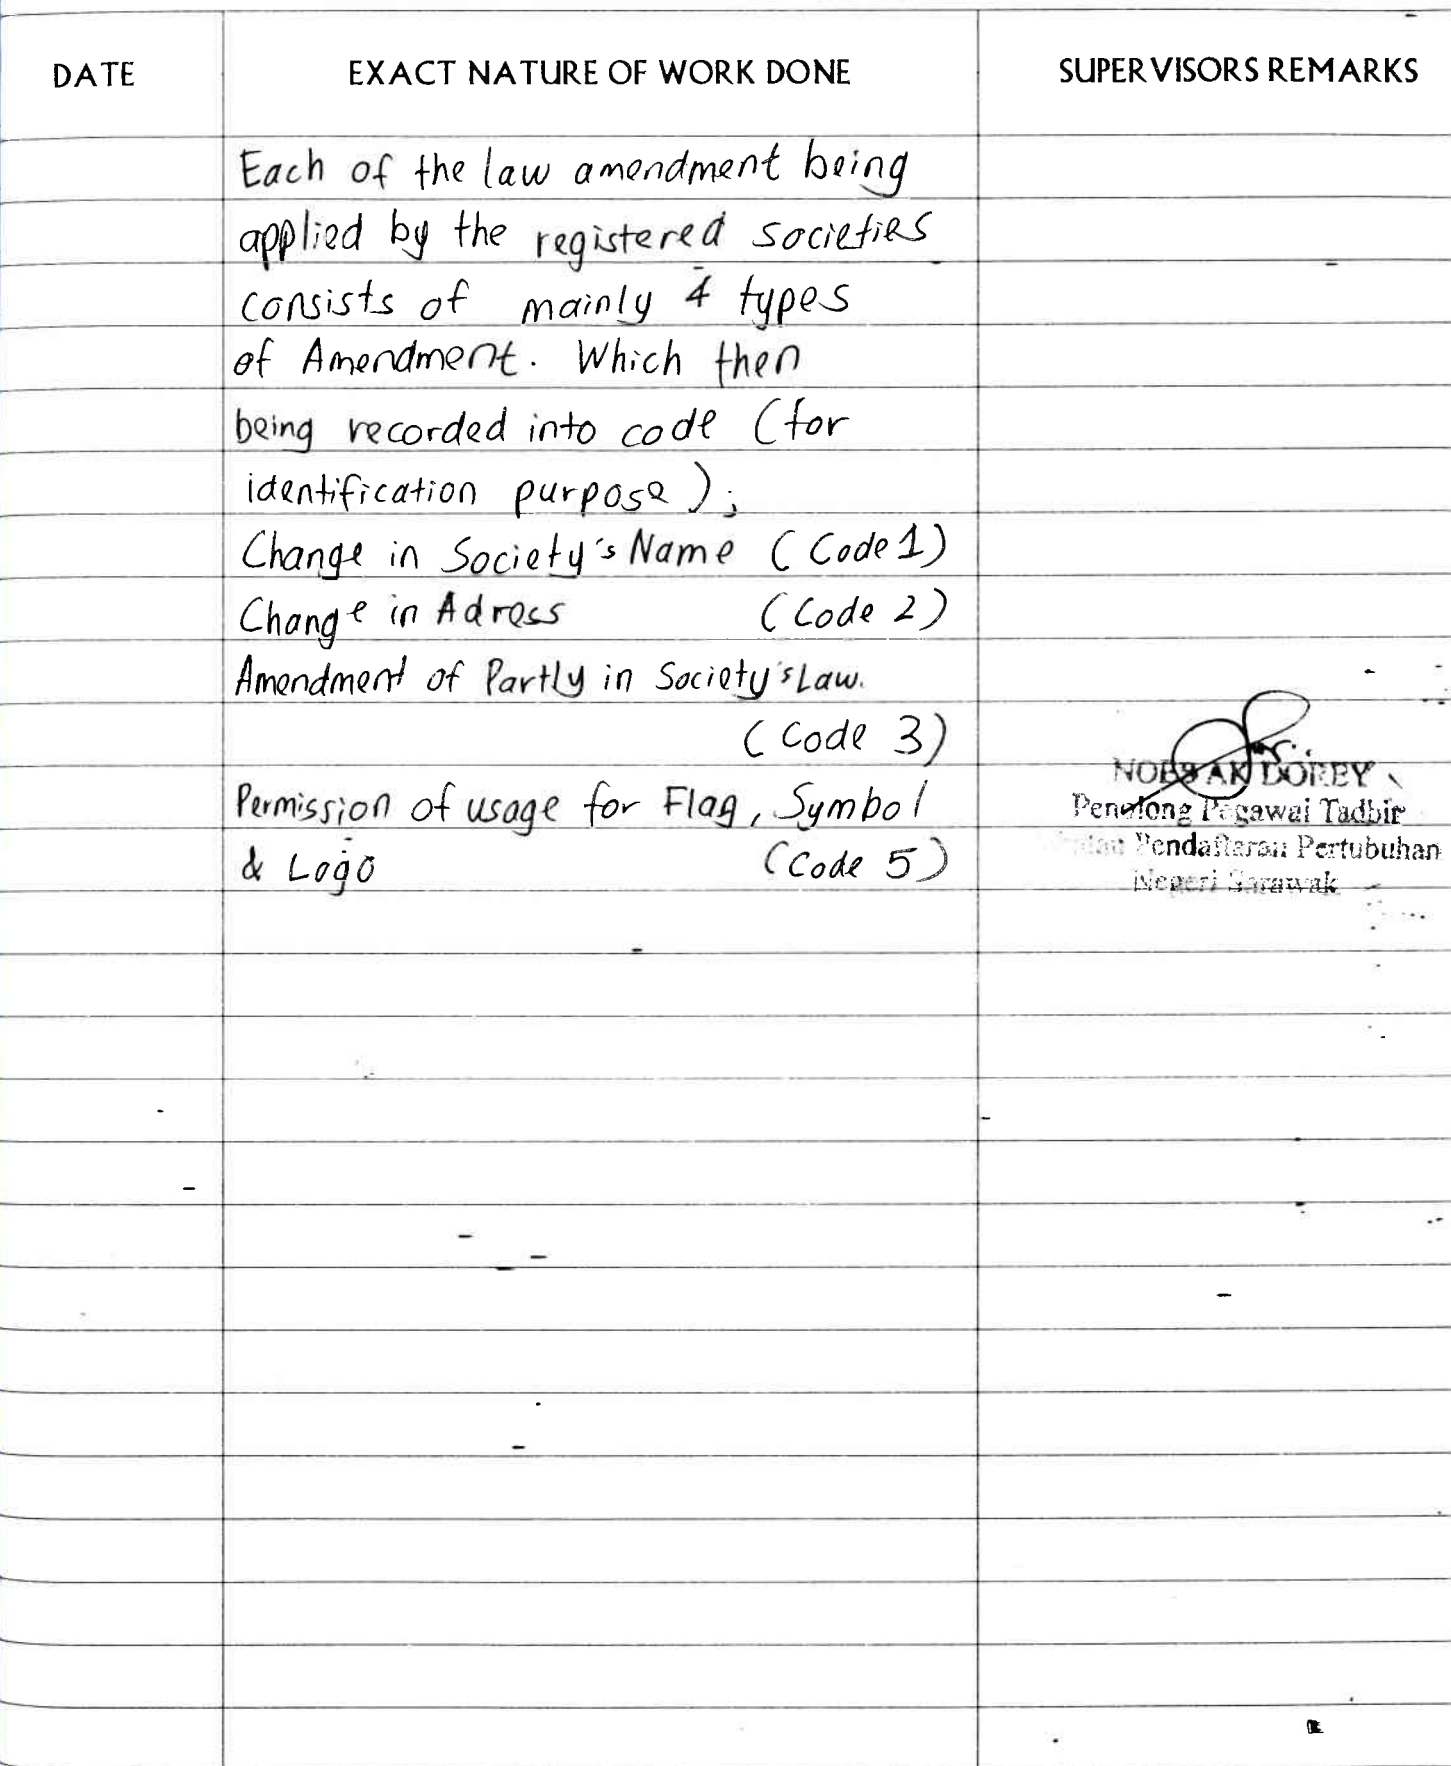 DATE EXACT NATURE OF WORK DONE SUPERVISORS REMARKS
Each of the law amendment being
applied by the registered societies
consists of mainly 4 types
of Amendment. Which then
being recorded into code (for
identification purpose);
Change in Society's Name (Code 1)
Change in Adress (Code 2)
Amendment of Partly in Society's Law.
(Code 3)
Permission of usage for Flag, Symbol
& Logo (Code 5)
AK DOREY
Penolong Pegawai Tadbir
Pendaftaran Pertubuhan
Negeri Sarawak